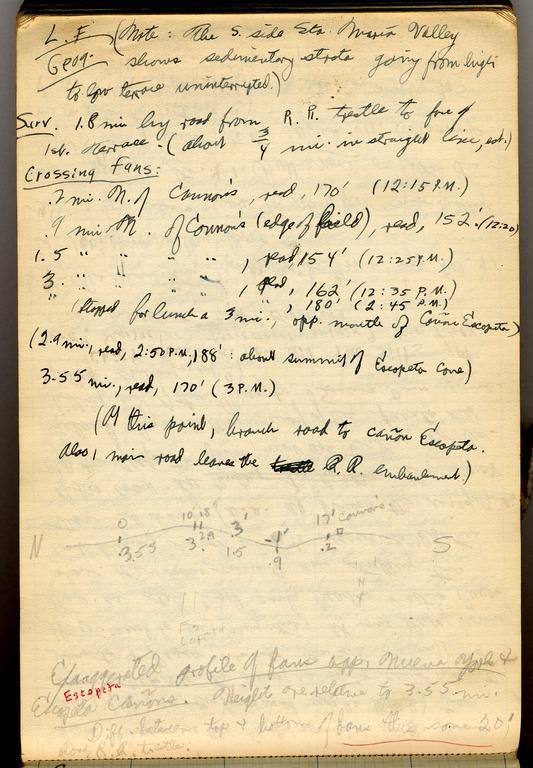 L.F. (Note: The S. side Sta. Maria Valley
Geog. shows sedimentary strata going from high
to low terrace uninterrupted.)
Surv. 1.8 mi by road from R.R. trestle to fore of
1st. terrace. (about 3/4 mi. in straight line, est.)
Crossing Fans:
.2 mi. N. of Connor's, read, 170' (12:15 P.M.)
.9 mi. N. of Connor's (edge of field), read, 152' (12:20)
1.5 " " " " , read, 154' (12:25 P.M.)
3. " " " " , read, 162' (12:35 P.M.)
" " , 180' (2:45 P.M.)
(Stopped for lunch a 3 mi., opp. mouth of Cañon Escopeta)
(2.9 mi., read, 2:50 P.M., 188': about summit of Escopeta Cone)
3.55 mi., read, 170' (3 P.M.)
(At this point, branch road to cañon Escopeta.
Also, main road leaves the R.R. embankment.)
0 10' 18' 3' -1' 17' Connor's
N 3.55 3. 2.9 1.5 .9 .2 S
N
Exaggerated profile of fans opp. Nueva York &
Escopeta
Cañons. Height are relative to 3.55 mi.
Diff. between top & bottom of fans thus some 20'
along R.R. trestle.